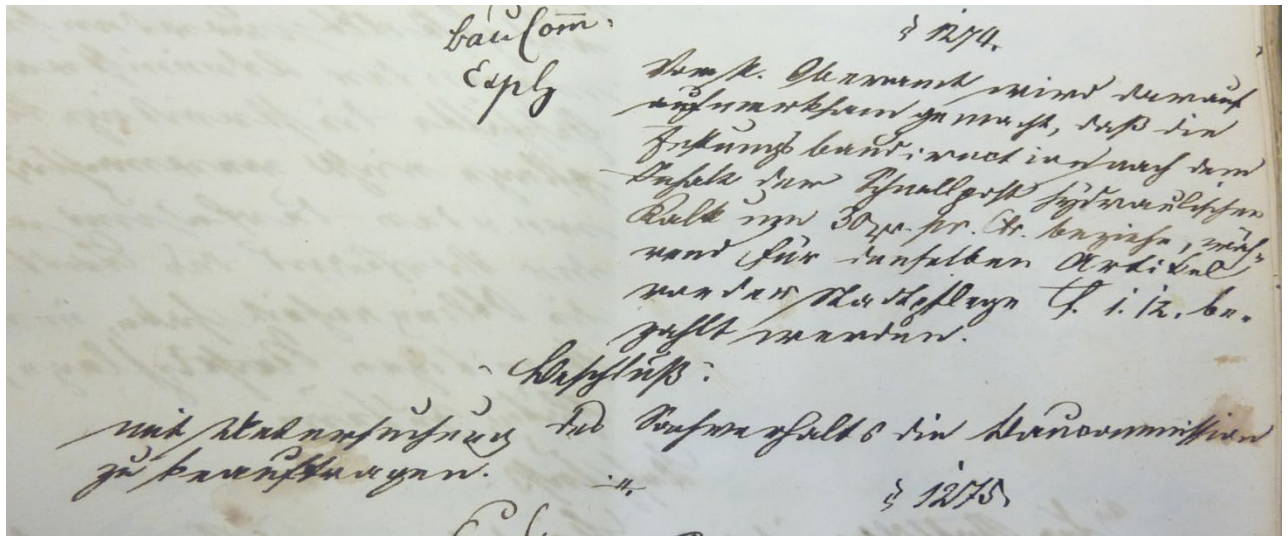 BauCom̅:
Exph
§ 1274.
Vom K. Oberamt wird darauf
aufmerksam gemacht, daß die
Festungsbaudirection nach dem
Inhalt der Schnellpost hydraulischen
Kalk um 30 xr. pr. Ctr. beziehe, wäh-
rend für denselben Artikel
von der Stadtpflege f. 1. 12. be-
zahlt werden.
Beschluß:
mit Untersuchung des Sachverhalts die Baucommission
zu beauftragen.
§ 1275.